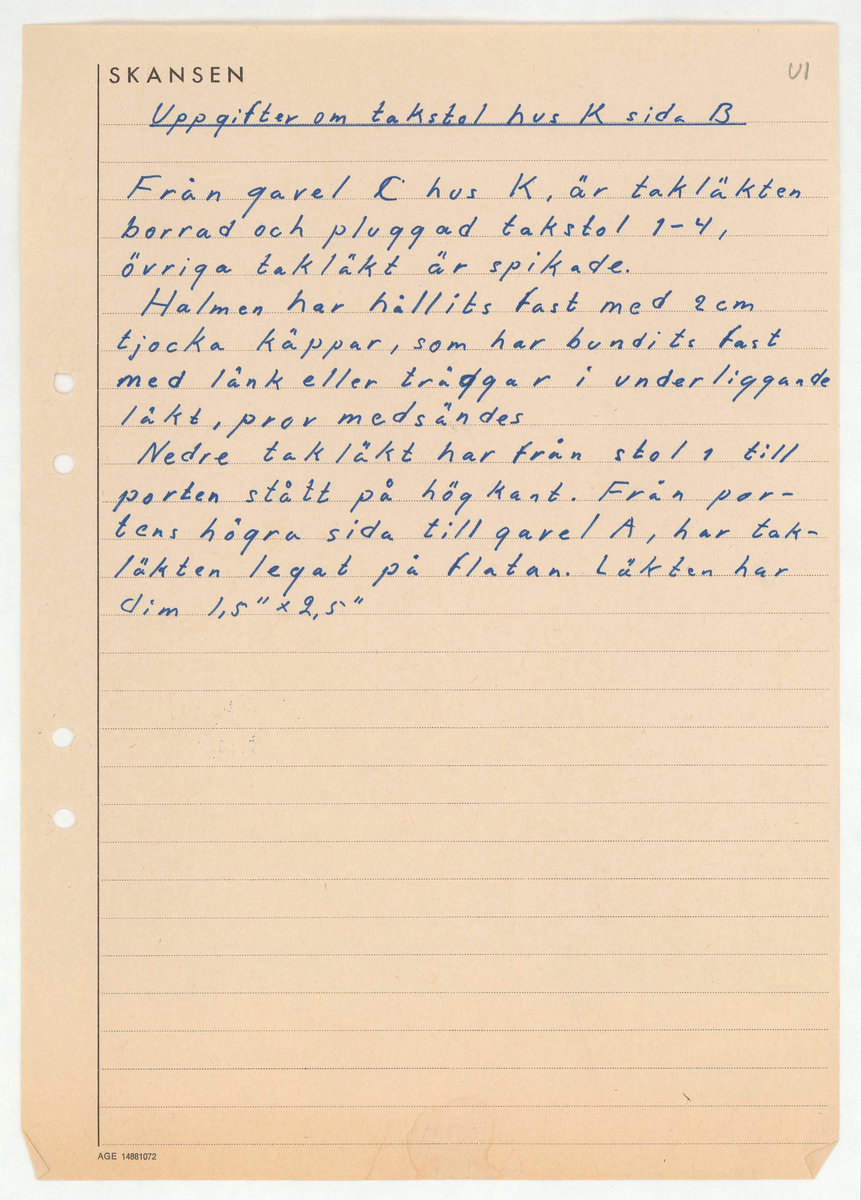 SKANSEN
VI
Uppgifter om takstol hus K sida B
Från gavel C hus K, är takläkten
borrad och pluggad takstol 1-4,
övriga takläkt är spikade.
Halmen har hållits fast med 2cm
tjocka käppar, som har bundits fast
med länk eller trådgar i underliggande
läkt, prov medsändes
Nedre takläkt har från stol 1 till
porten stått på hög kant. Från por-
tens högra sida till gavel A, har tak-
läkten legat på flatan. Läkten har
dim 1,5" x 2,5"
AGE 14881072